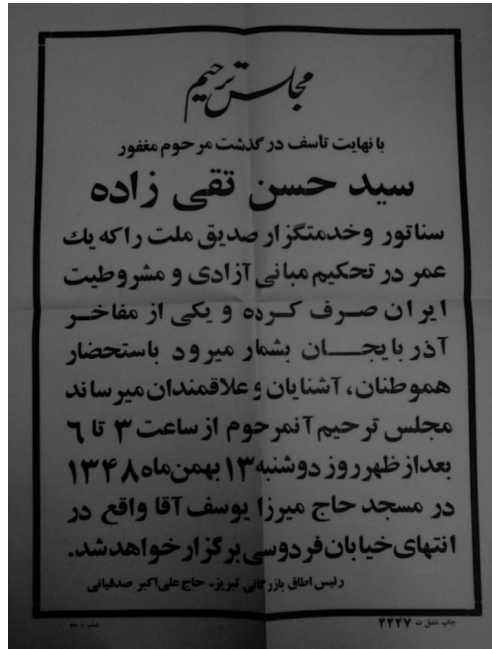 مجلس ترحیم
با نهایت تأسف درگذشت مرحوم مغفور
سید حسن تقی زاده
سناتور وخدمتگزار صدیق ملت راکه یك
عمر در تحکیم مبانی آزادی و مشروطیت
ایران صرف کرده و یکی از مفاخر
آذربایجان بشمار میرود باستحضار
هموطنان، آشنایان و علاقمندان میرساند
مجلس ترحیم آنمرحوم از ساعت ۳ تا ۶
بعدازظهر روز دوشنبه ۱۳ بهمن‌ماه ۱۳۴۸
در مسجد حاج میرزا یوسف آقا واقع در
انتهای خیابان فردوسی برگزار خواهدشد.
رئیس اطاق بازرگانی تبریز- حاج علی‌اکبر صدقیانی
چاپ شفق ت ۴۴۴۷